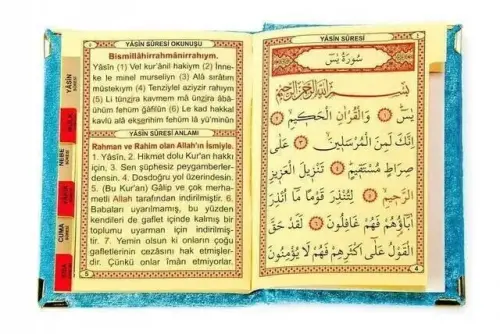 YÂSÎN SÛRESİ OKUNUŞU
Bismillâhirrahmânirrahıym.
Yâsîn (1) Vel kur'ânil hakiym (2) İnne-
ke le minel murseliyn (3) Alâ sırâtım
müstekıym (4) Tenziylel aziyzir rahıym
(5) Li tünzira kavmem mâ ünzira âbâ-
ühüm fehüm ğâfilûn (6) Le kad hakkal
kavlü alâ ekserihim fehüm lâ yü'minûn
YÂSİN SÛRESİ ANLAMI
Rahman ve Rahim olan Allah'ın İsmiyle.
1. Yâsîn. 2. Hikmet dolu Kur'an hakkı
için, 3. Sen şüphesiz peygamberler-
densin. 4. Dosdoğru yol üzerindesin.
5. (Bu Kur'an) Gâlip ve çok merha-
metli Allah tarafından indirilmiştir. 6.
Babaları uyarılmamış, bu yüzden
kendileri de gaflet içinde kalmış bir
toplumu uyarman için indirilmiş-
tir. 7. Yemin olsun ki onların çoğu
gafletlerinin cezasını hak etmişler-
dir. Çünkü onlar îman etmiyorlar.
5
YÂSİN
NEBE
CUMA
YÂSİN SÛRESİ
سُورَةُ يٰسٓ
بِسْمِ اللّٰهِ الرَّحْمٰنِ الرَّحِيمِ
يٰسٓ ١ وَالْقُرْاٰنِ الْحَكِيمِ ٢
اِنَّكَ لَمِنَ الْمُرْسَلِينَ ٣ عَلٰى
صِرَاطٍ مُسْتَقِيمٍ ٤ تَنْزِيلَ الْعَزِيزِ
الرَّحِيمِ ٥ لِتُنْذِرَ قَوْمًا مَٓا اُنْذِرَ
اٰبَٓاؤُ۬هُمْ فَهُمْ غَافِلُونَ ٦ لَقَدْ حَقَّ
الْقَوْلُ عَلٰٓى اَكْثَرِهِمْ فَهُمْ لَا يُؤْمِنُونَ
4